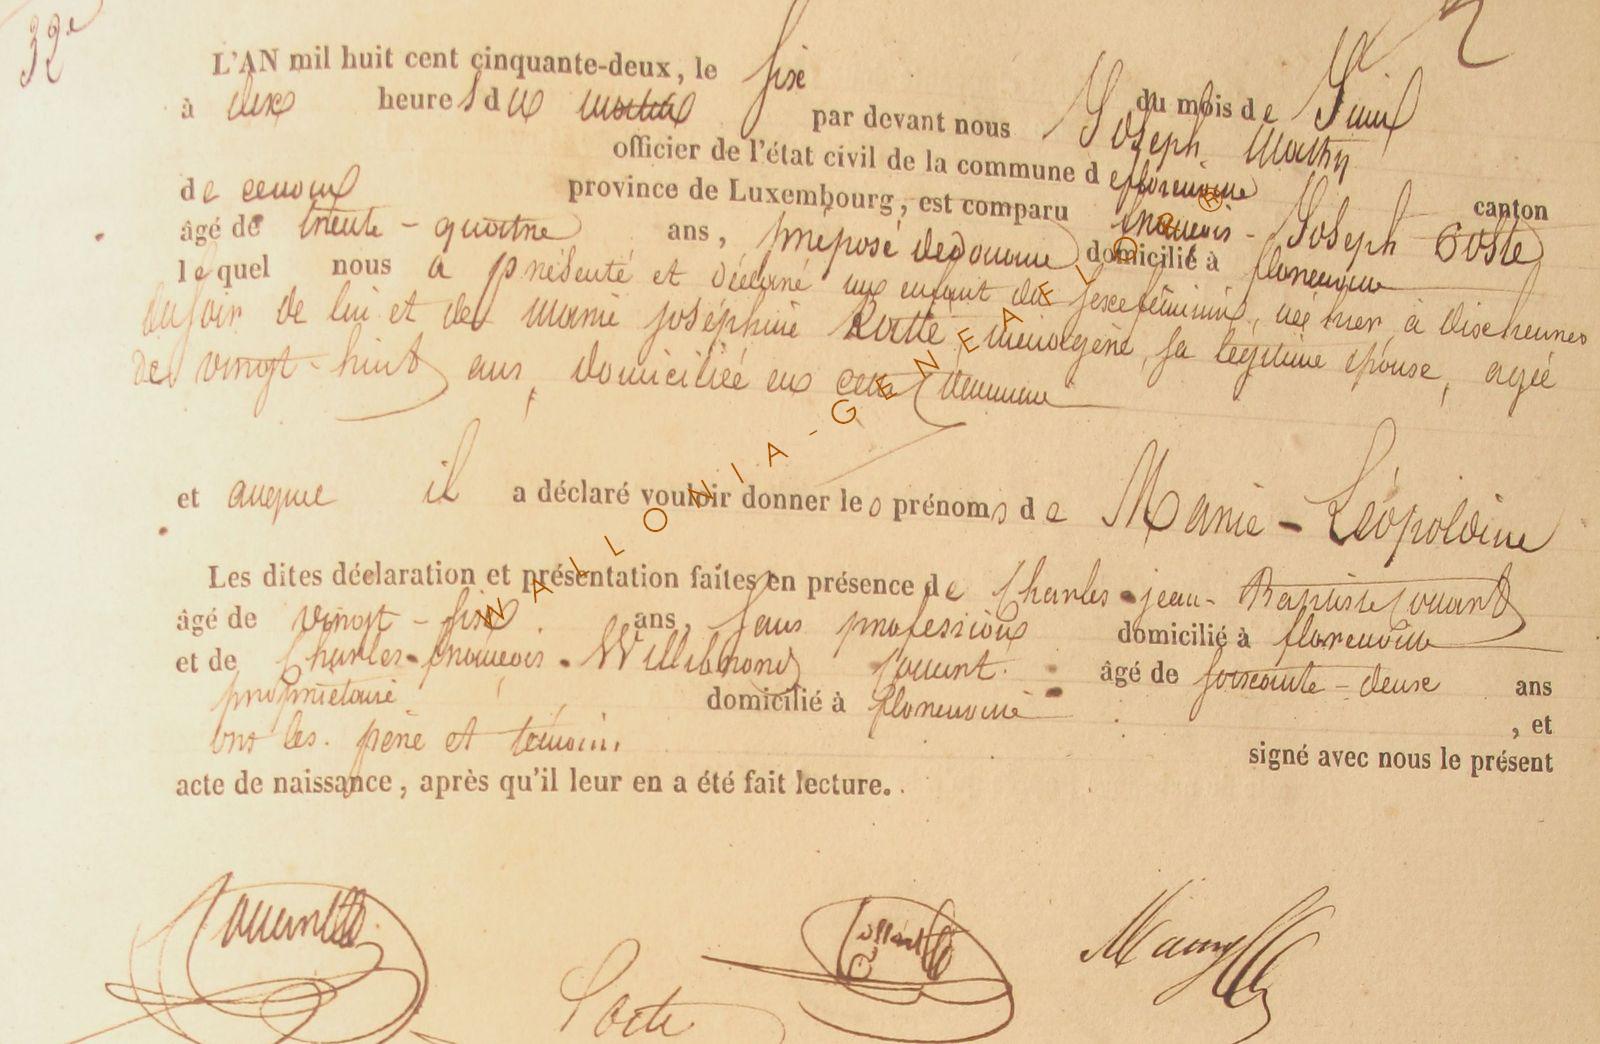 32e
L'AN mil huit cent cinquante-deux, le six du mois de Juin
à dix heures du matin par devant nous Joseph Mathy
officier de l'état civil de la commune de florenville canton
de florenville province de Luxembourg, est comparu françois-Joseph Coste
âgé de trente-quatre ans, préposé dedouane domicilié à florenville
lequel nous a présenté et déclaré un enfant du sexe féminin, née hier, à dix heures
du soir de lui et de marie joséphine Rolle, ménagère, sa légitime épouse, agée
de vingt-huit ans, domiciliée en cette commune
et auquel il a déclaré vouloir donner les prénoms de Marie-Léopoldine
Les dites déclaration et présentation faites en présence de Charles-jean-Baptiste
âgé de vingt-six ans, sans profession domicilié à florenville
et de Charles-françois-Willibrord âgé de soixante-deux ans
propriétaire domicilié à florenville , et
ont les père et témoins signé avec nous le présent
acte de naissance, après qu'il leur en a été fait lecture.
Coste
WALLONIA-GENEALOGY ®